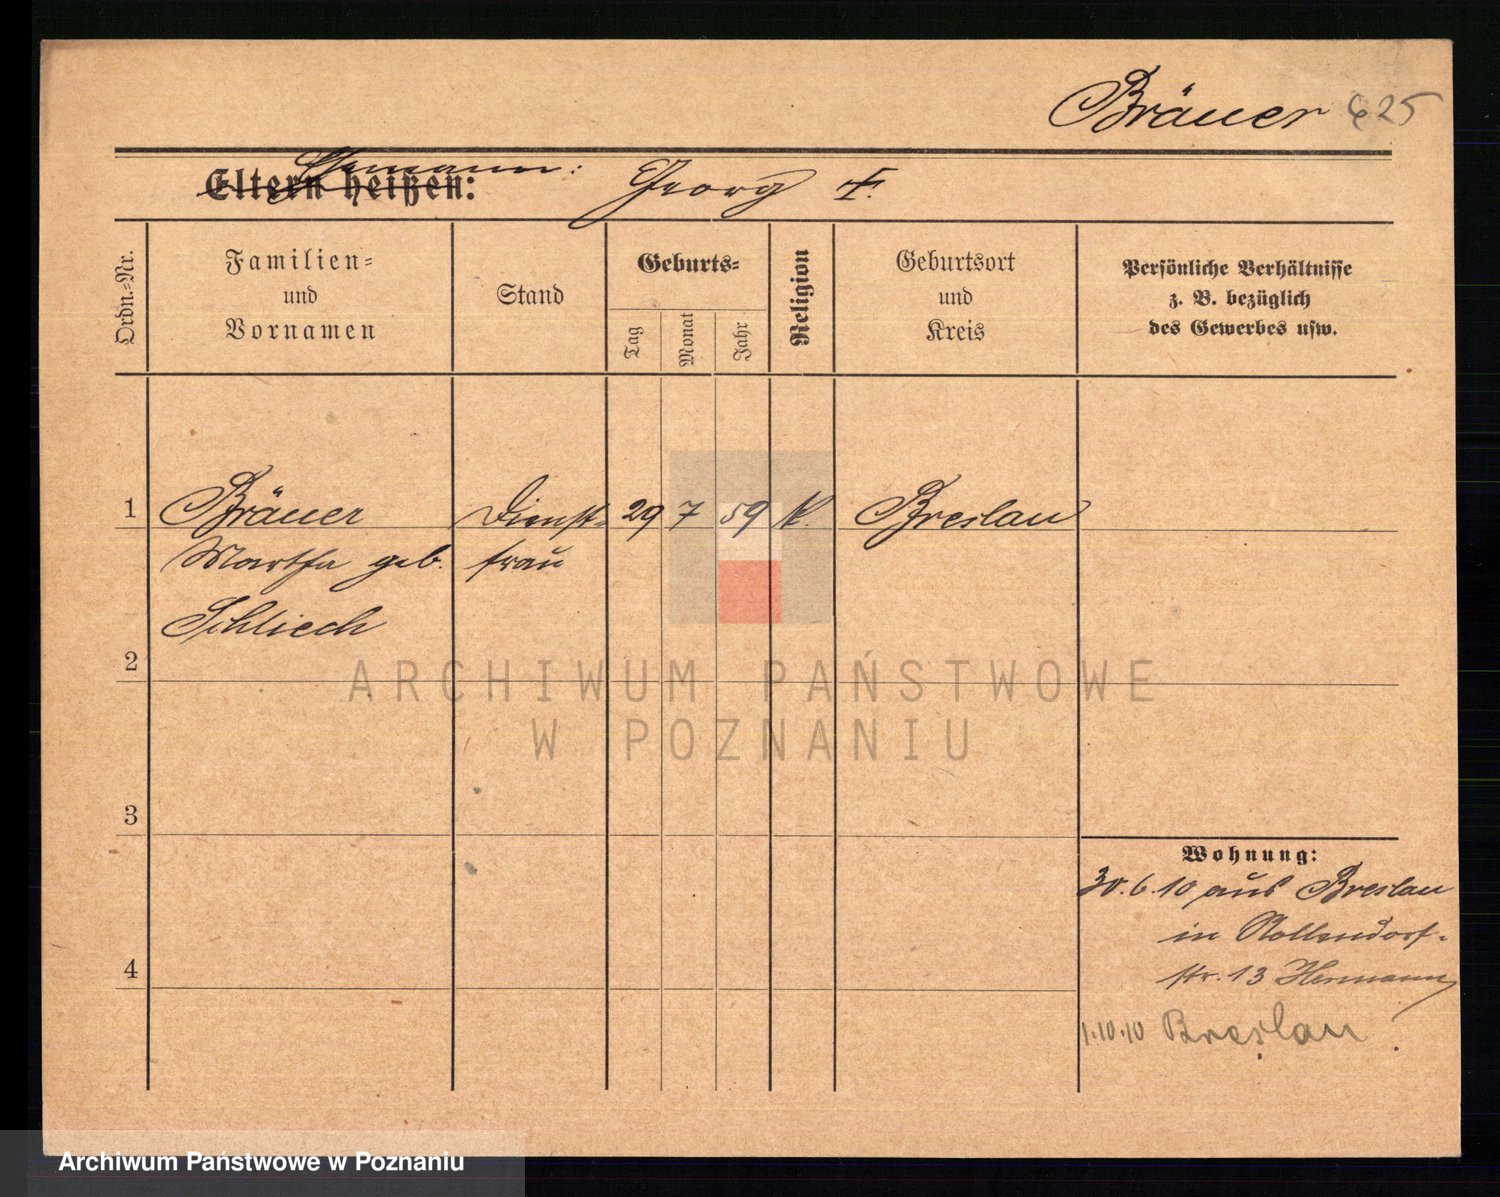 Bräuer 625
Eltern heißen: Ehemann: Georg †.
Ordn.-Nr.
Familien-
und
Vornamen
Stand
Geburts-
Tag
Monat
Jahr
Religion
Geburtsort
und
Kreis
Persönliche Verhältnisse
z. B. bezüglich
des Gewerbes usw.
1 Bräuer Dienst- 29 7 59 k. Breslau
Martha geb. frau
Schliech
2
ARCHIWUM PAŃSTWOWE
W POZNANIU
3
Wohnung:
30.6.10 aus Breslau
in Nollendorf-
4
str. 13 Hermann
1.10.10 Breslau
Archiwum Państwowe w Poznaniu